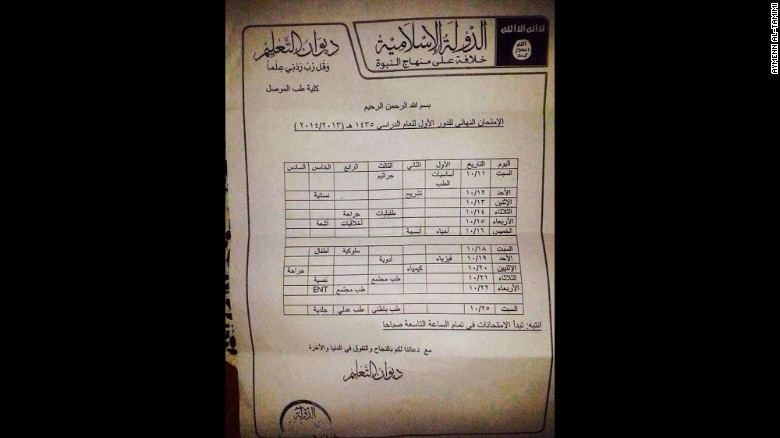 ديوان التعليم
وقل رب زدني علماً
الدولة الإسلامية
خلافة على منهاج النبوة
لا اله الا الله
الله
رسول
محمد
كلية طب الموصل
بسم الله الرحمن الرحيم
الإمتحان النهائي للدور الأول للعام الدراسي ١٤٣٥ هـ (٢٠١٤/٢٠١٣ )
اليوم التاريخ الأول الثاني الثالث الرابع الخامس السادس
السبت ١٠/١١ أساسيات الطب جراثيم
الأحد ١٠/١٢ تشريح نسائية
الإثنين ١٠/١٣
الثلاثاء ١٠/١٤ طفيليات جراحة
الأربعاء ١٠/١٥ أخلاقيات أشعة
الخميس ١٠/١٦ أحياء أنسجة
السبت ١٠/١٨ سلوكية أطفال
الأحد ١٠/١٩ فيزياء أدوية
الإثنين ١٠/٢٠ كيمياء جراحة
الثلاثاء ١٠/٢١ طب مجتمع نفسية
الأربعاء ١٠/٢٢ طب مجتمع ENT
السبت ١٠/٢٥ طب باطني طب عدلي جلدية
انتبه: تبدأ الامتحانات في تمام الساعة التاسعة صباحا
مع دعائنا لكم بالنجاح والتفوق في الدنيا والآخرة
ديوان التعليم
الدولة
AYMENN AL-TAMIMI